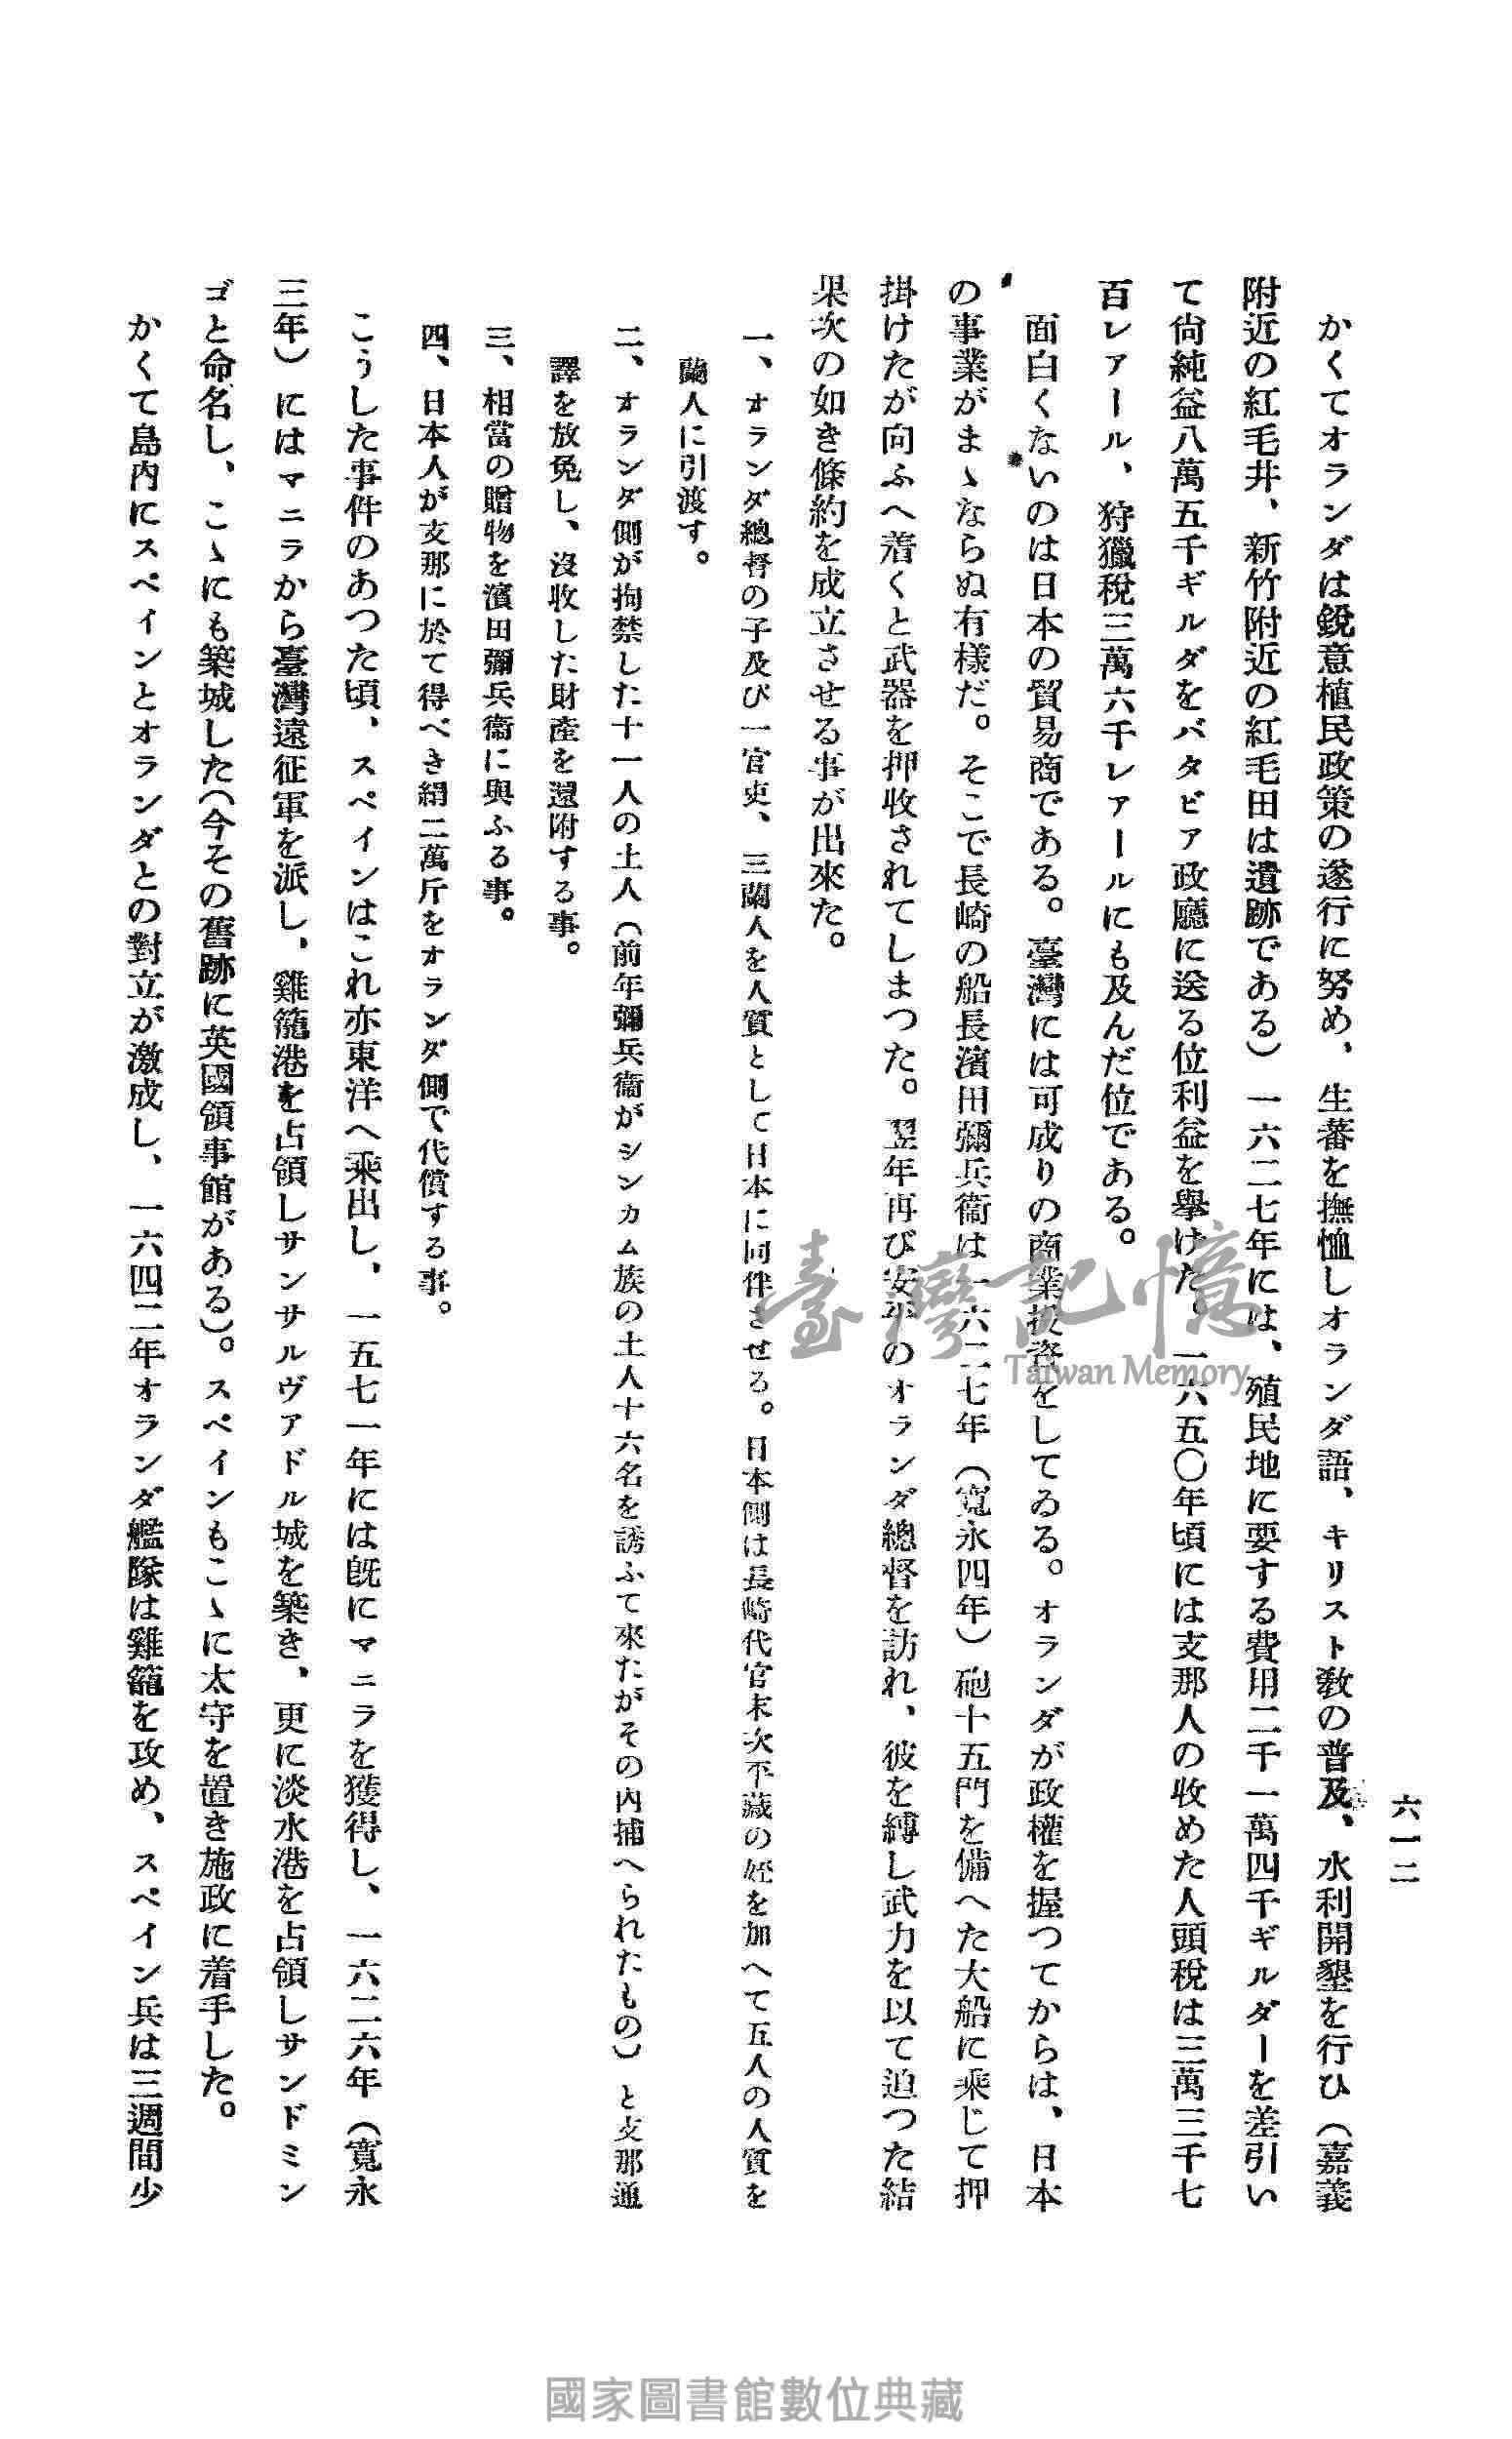 六一二
かくてオランダは鋭意植民政策の遂行に努め、生蕃を撫恤しオランダ語、キリスト教の普及、水利開墾を行ひ（嘉義
附近の紅毛井、新竹附近の紅毛田は遺跡である）一六二七年には、殖民地に要する費用二千一萬四千ギルダーを差引い
て尙純益八萬五千ギルダをバタビア政廳に送る位利益を擧けた。一六五〇年頃には支那人の收めた人頭稅は三萬三千七
百レアール、狩獵稅三萬六千レアールにも及んだ位である。
面白くないのは日本の貿易商である。臺灣には可成りの商業投資をしてゐる。オランダが政權を握つてからは、日本
の事業がまゝならぬ有樣だ。そこで長崎の船長濱田彌兵衞は一六二七年（寬永四年）砲十五門を備へた大船に乘じて押
掛けたが向ふへ着くと武器を押收されてしまつた。翌年再び安平のオランダ總督を訪れ、彼を縛し武力を以て迫つた結
果次の如き條約を成立させる事が出來た。
一、オランダ總督の子及び一官吏、三蘭人を人質として日本に同伴させる。日本側は長崎代官末次平藏の姪を加へて五人の人質を
蘭人に引渡す。
二、オランダ側が拘禁した十一人の土人（前年彌兵衞がシンカム族の土人十六名を誘ふて來たがその內捕へられたもの）と支那通
譯を放免し、沒收した財產を還附する事。
三、相當の贈物を濱田彌兵衞に與ふる事。
四、日本人が支那に於て得べき絹二萬斤をオランダ側で代償する事。
こうした事件のあつた頃、スペインはこれ亦東洋へ乘出し、一五七一年には旣にマニラを獲得し、一六二六年（寬永
三年）にはマニラから臺灣遠征軍を派し、雞籠港を占領しサンサルヴアドル城を築き、更に淡水港を占領しサンドミン
ゴと命名し、こゝにも築城した（今その舊跡に英國領事館がある）。スペインもこゝに太守を置き施政に着手した。
かくて島内にスペインとオランダとの對立が激成し、一六四二年オランダ艦隊は雞籠を攻め、スペイン兵は三週間少
臺灣記憶
Taiwan Memory
國家圖書館數位典藏